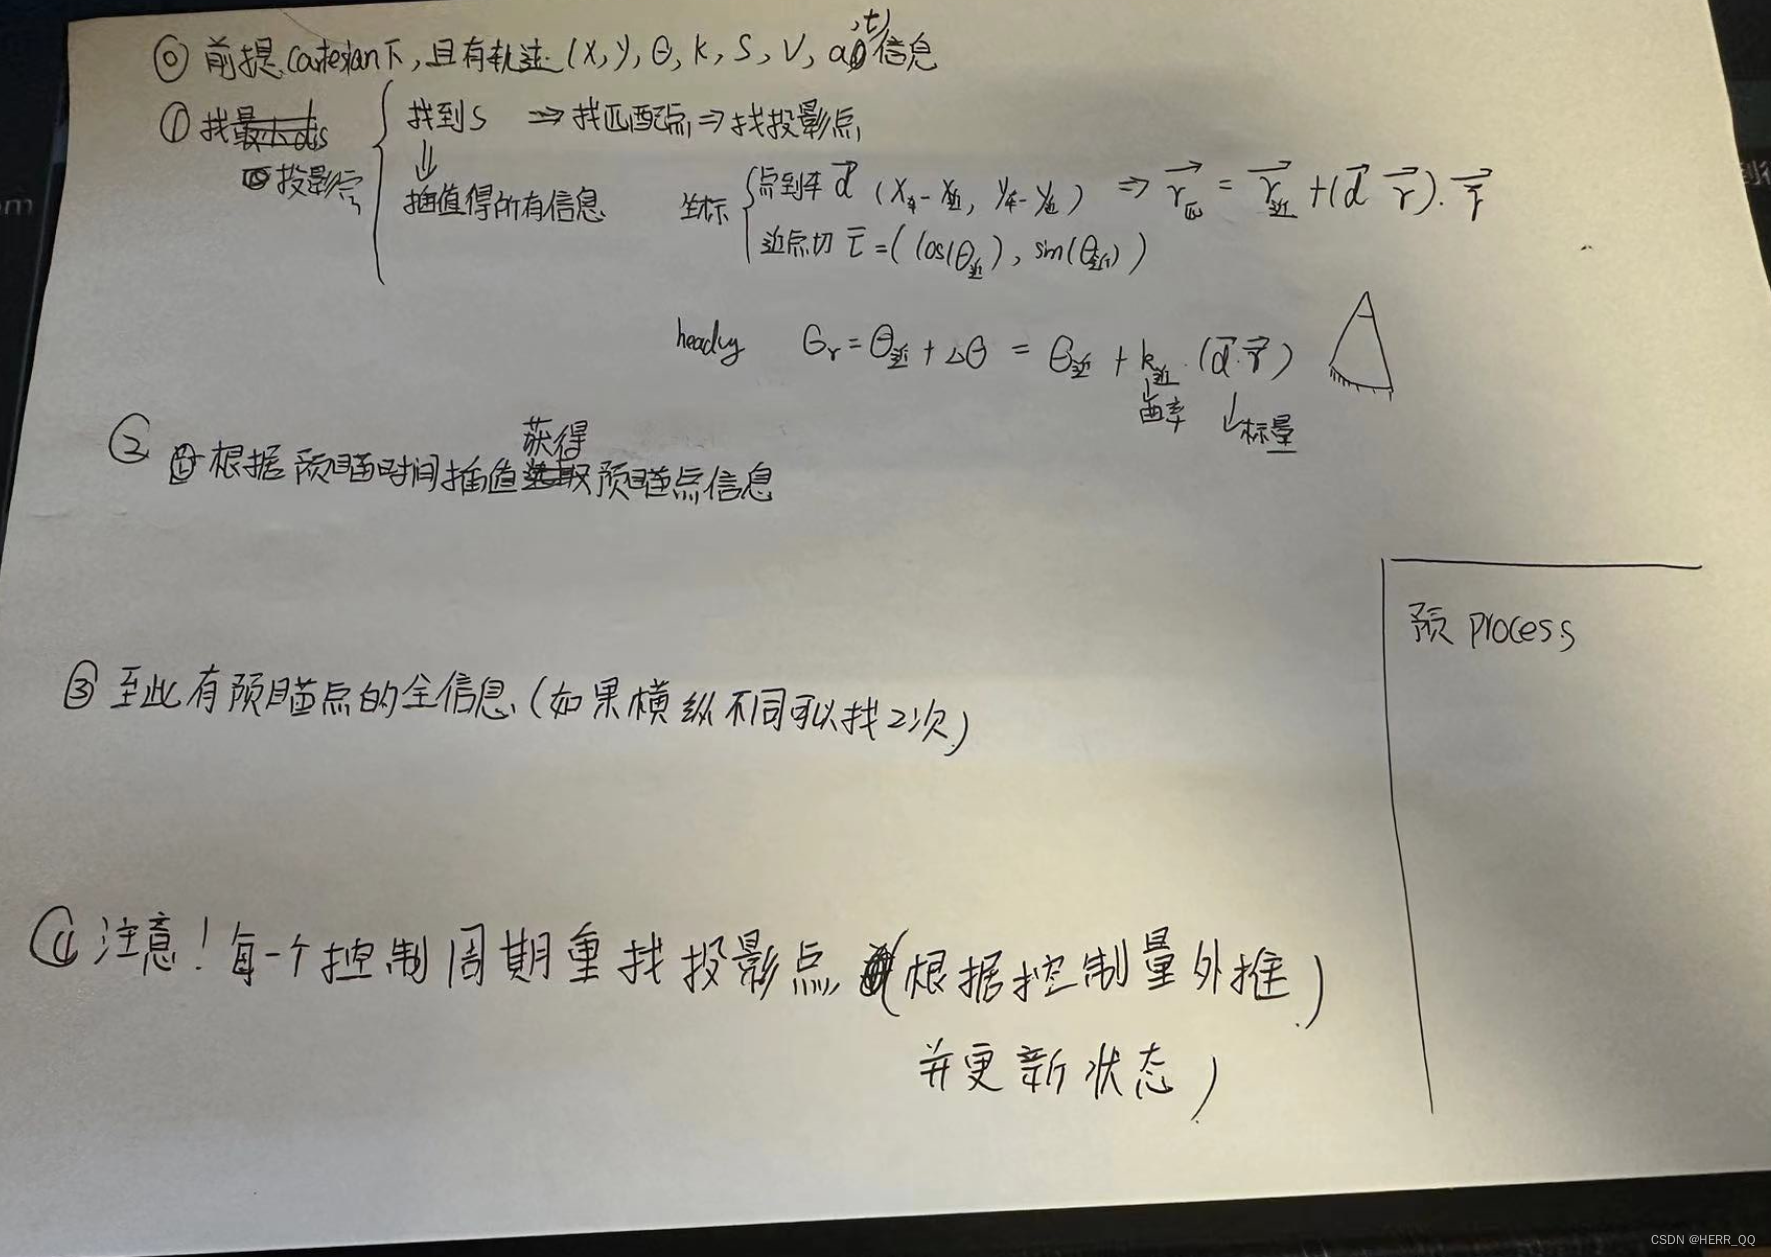 ⓪ 前提 Cartesian下,且有轨迹 (x, y, θ, k, s, v, a, t) 信息
① 找投影点
找到 s ⇒ 找匹配点 ⇒ 找投影点
⇓
插值得所有信息
坐标
点到车 d⃗ (x车-x近, y车-y近) ⇒ r⃗匹 = r⃗近 + (d⃗ τ⃗)·τ⃗
近点切 τ = (cos(θ近), sin(θ近))
heading θr = θ近 + Δθ = θ近 + k近·(d⃗·τ⃗)
↓曲率 ↓标量
② 根据预瞄时间插值获得预瞄点信息
预 process
③ 至此有预瞄点的全信息 (如果横纵不同可以找2次)
④ 注意! 每一个控制周期重找投影点 (根据控制量外推)
并更新状态)
CSDN @HERR_QQ